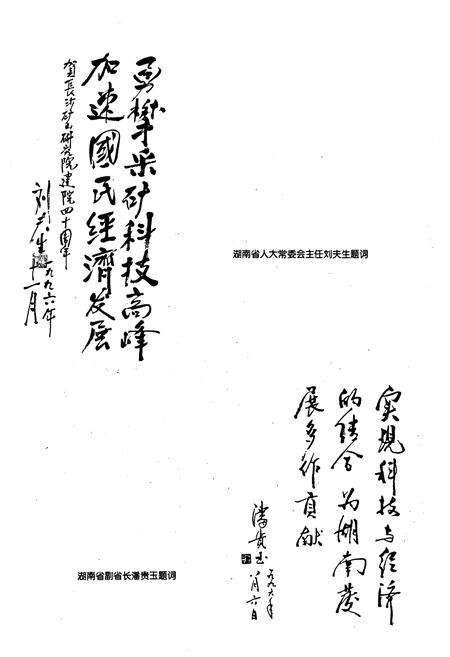 勇攀采矿科技高峰
加速國民經濟发展
贺长沙矿山研究院建院四十周年
刘夫生
一九九六年
十一月
湖南省人大常委会主任刘夫生题词
实现科技与经济
的结合 为湖南发
展多作贡献
潘贵玉
一九九六年
八月六日
湖南省副省长潘贵玉题词